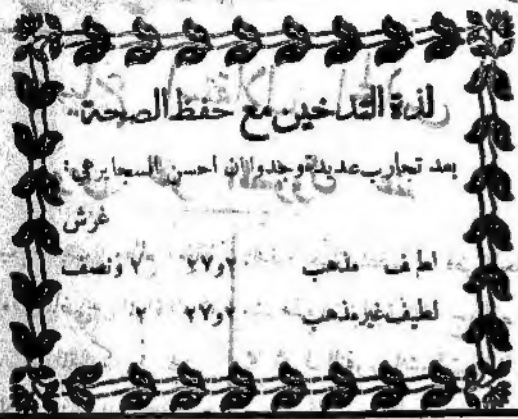 لذة التدخين مع حفظ الصحة
بعد تجارب عديدة وجدوا ان احسن السجاير هي :
غرش
لطيف مذهب ٢٠و٢٧ ٧ ونصف
لطيف غير مذهب ٢٠و٢٧ ٢